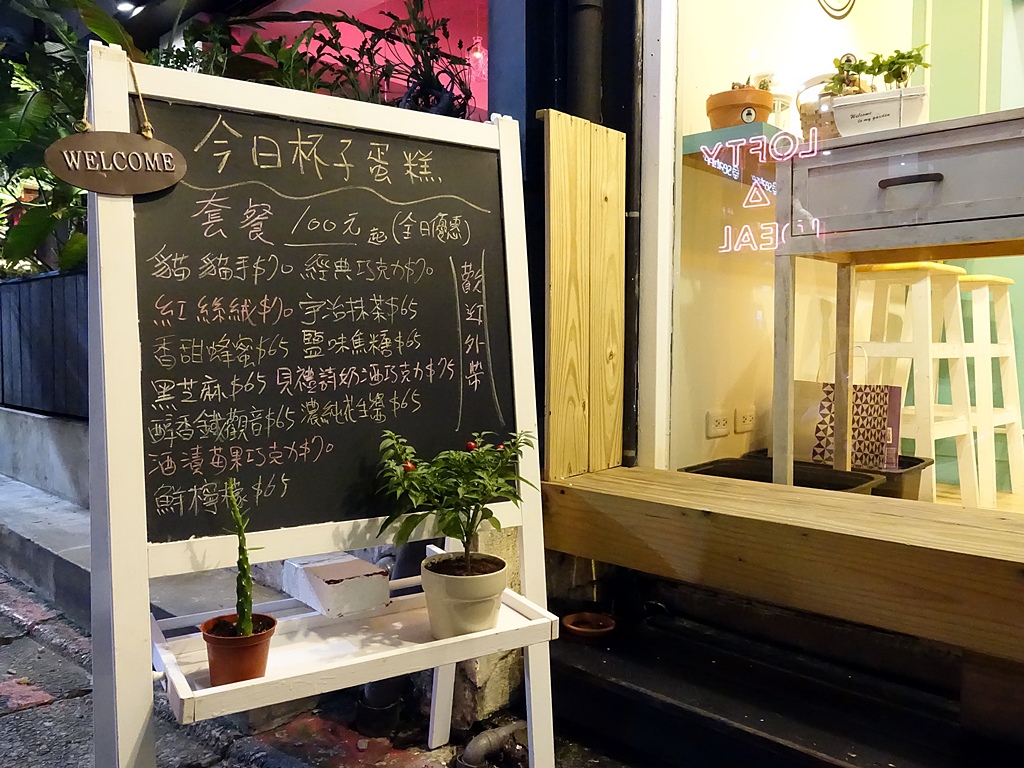 WELCOME
今日杯子蛋糕
套餐 100元起(全日優惠)
貓貓手$70 經典巧克力$70
紅絲絨$70 宇治抹茶$65
香甜蜂蜜$65 鹽味焦糖$65
黑芝麻$65 貝禮詩奶酒巧克力$75
醇香鐵觀音$65 濃純花生醬$65
酒漬苺果巧克力$70
鮮檸檬$65
歡迎外帶
LOFTY
Welcome
to my garden